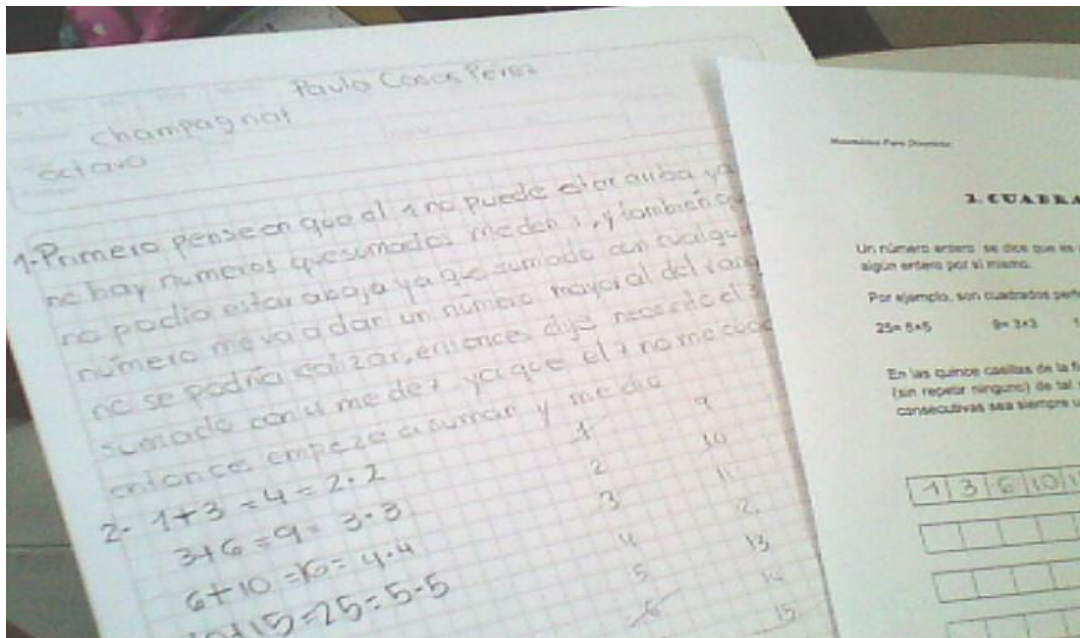 Paula Casas Pérez
Champagnat
octavo
1-Primero pense en que el 1 no puede estar arriba ya
no hay numeros que sumados me den 1, y tambien
no podia estar abajo ya que sumado con cualquier
número me va a dar un número mayor al del rang
no se podría realizar, entonces dije necesito el
sumado con me de 7 ya que el 7 no me
entonces empeze a sumar y me dio
2- 1+3=4=2·2
3+6=9=3·3
6+10=16=4·4
+15=25=5·5
1
2
3
4
5
6
9
10
11
12
13
14
15
Matemática Para Divertirse
2. CUADRA
Un número entero se dice que es
algún entero por sí mismo.
Por ejemplo, son cuadrados perf
25= 5×5 9= 3×3 1
En las quince casillas de la f
(sin repetir ninguno) de tal
consecutivas sea siempre u
1 3 6 10 1